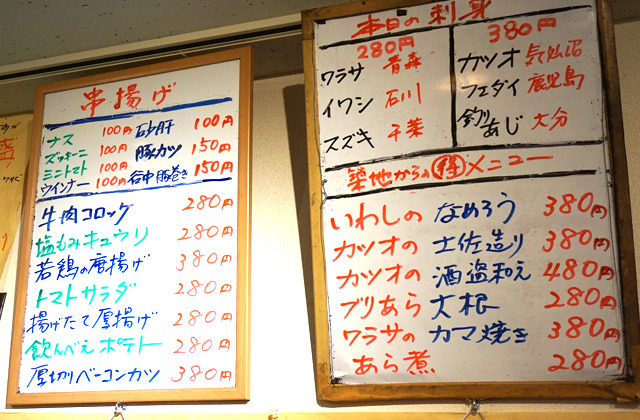 串揚げ
ナス 100円 砂肝 100円
ズッキーニ 100円 豚カツ 150円
ミニトマト 100円
ウインナー 100円 谷中豚巻き 150円
牛肉コロッケ 280円
塩もみキュウリ 280円
若鶏の唐揚げ 380円
トマトサラダ 280円
揚げたて厚揚げ 280円
飲んべえポテト 280円
厚切りベーコンカツ 380円
本日の刺身
280円
ワラサ 青森
イワシ 石川
スズキ 千葉
380円
カツオ 気仙沼
フエダイ 鹿児島
釣りあじ 大分
築地からの得メニュー
いわしのなめろう 380円
カツオの土佐造り 380円
カツオの酒盗和え 480円
ブリあら大根 280円
ワラサのカマ焼き 380円
あら煮 280円